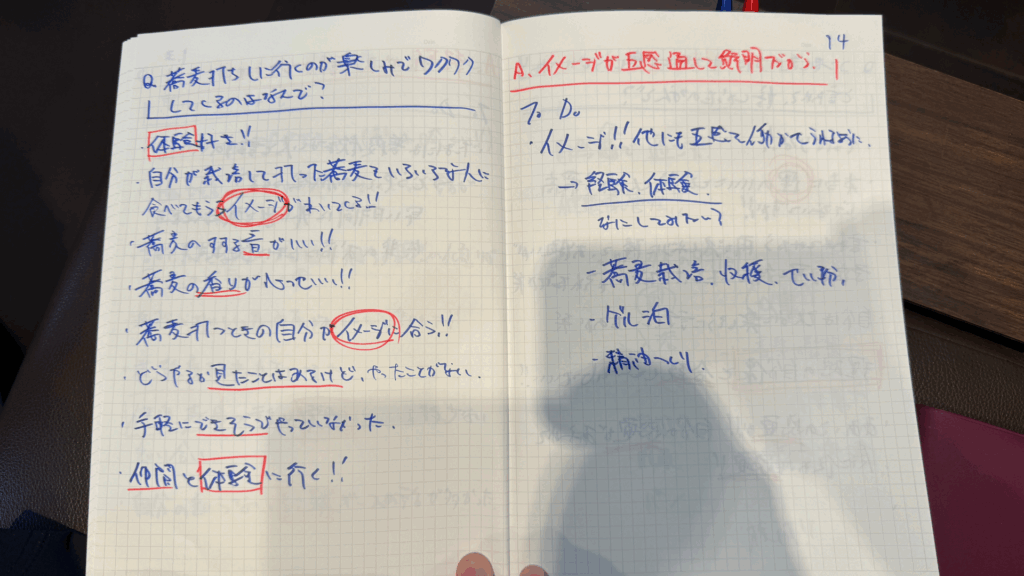 Q 蕎麦打ちしに行くのが楽しみでワクワク
してくるのはなんで?
・体験好き!!
・自分が栽培して打った蕎麦でいろいろな人に
食べてもらうイメージがわいてくる!!
・蕎麦のすする音がいい!!
・蕎麦の香りがいい!!
・蕎麦打つときの自分がイメージに合う!!
・どうやるか見たことはあるけど、やったことがない.
・手軽にできそうでやっていなかった.
・仲間と体験に行く!!
14
A. イメージが五感通して鮮明だから.
To Do
・イメージ!! 他にも五感で働かせられるように.
→ 経験、体験.
なにしてみたい?
- 蕎麦栽培、収穫、
- ゲル泊
- 精油つくり.